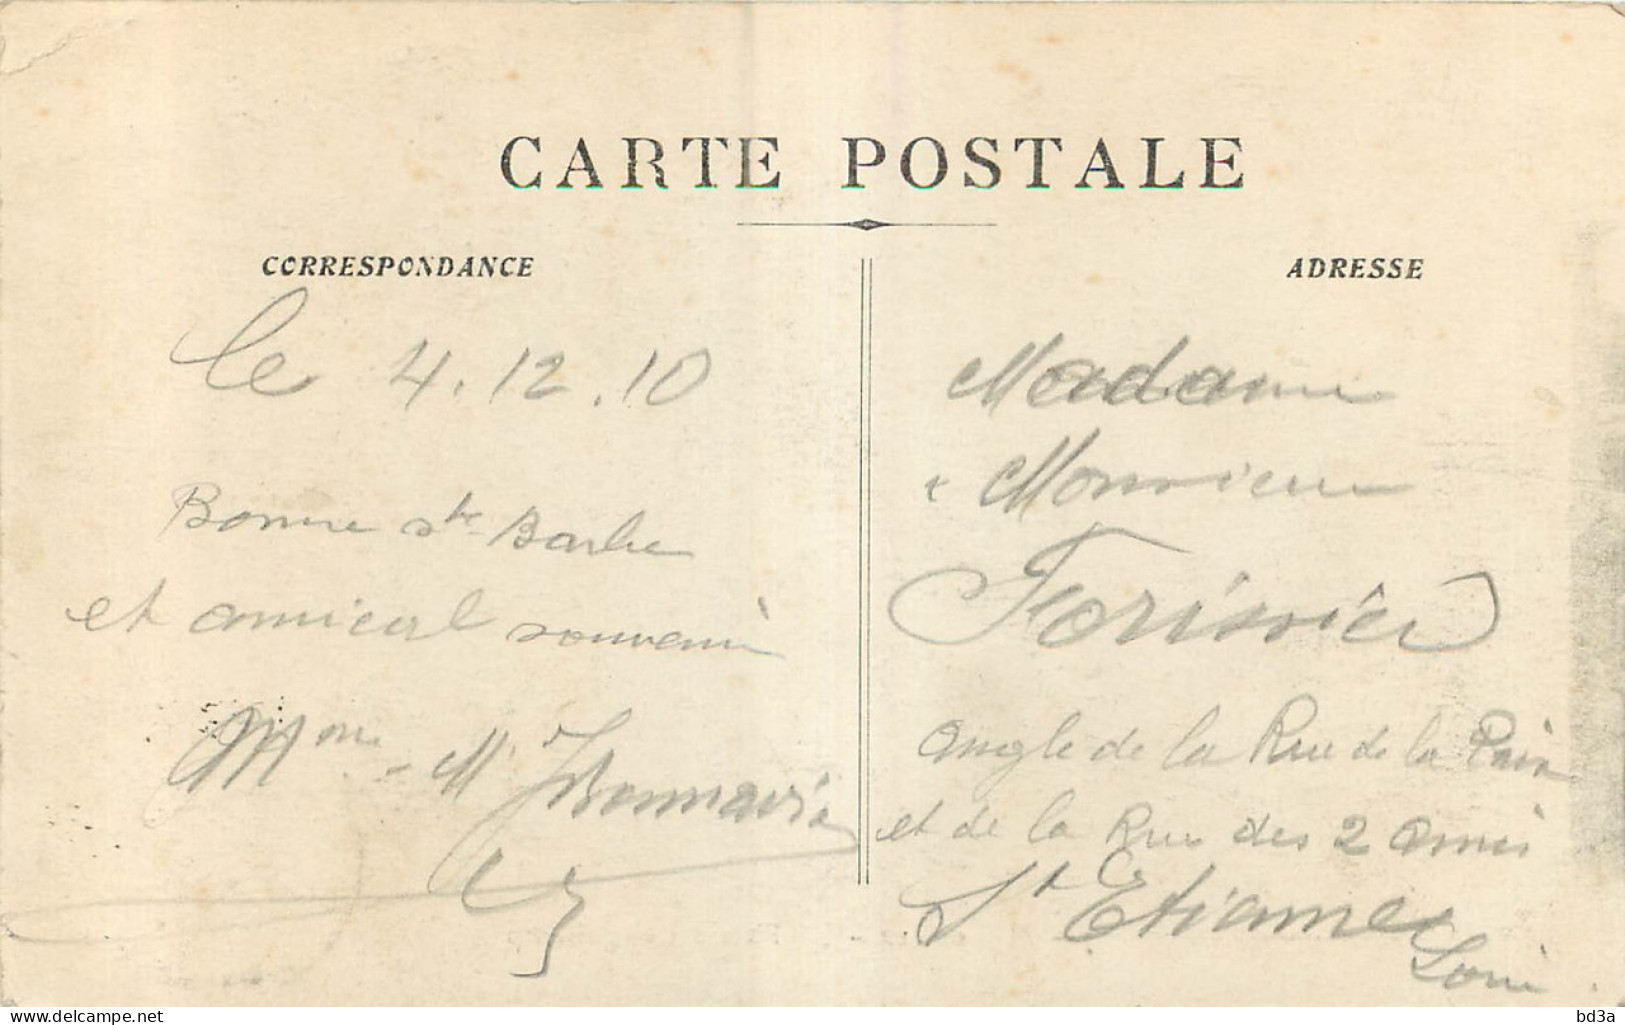 CARTE POSTALE
CORRESPONDANCE
le 4.12.10
Bonne ste Barbe
et amical souvenir
M
ADRESSE
Madame
Monsieur
angle de la Rue de la Paix
et de la Rue des 2 amis
St Etienne
Loire
delcampe.net
bd3a